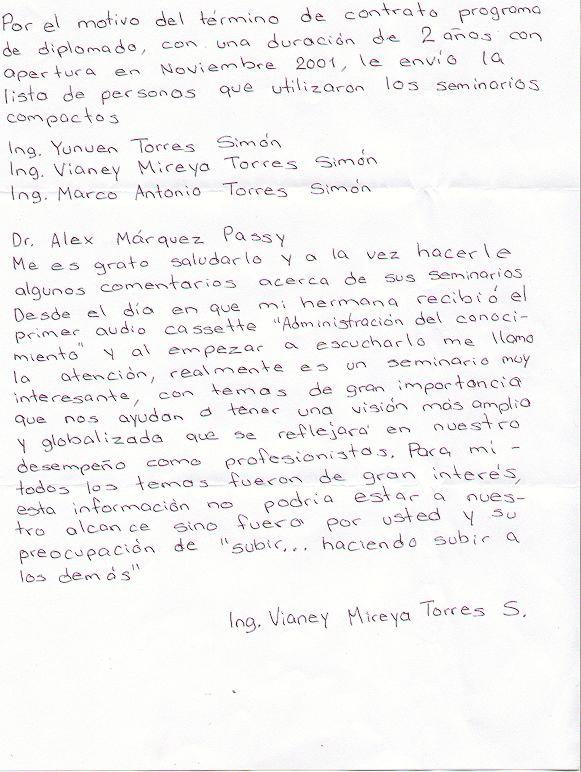 Por el motivo del término de contrato programa
de diplomado, con una duración de 2 años con
apertura en Noviembre 2001, le envío la
lista de personas que utilizaron los seminarios
compactos
Ing. Yunuen Torres Simón
Ing. Vianey Mireya Torres Simón
Ing. Marco Antonio Torres Simón
Dr. Alex Márquez Passy
Me es grato saludarlo y a la vez hacerle
algunos comentarios acerca de sus seminarios
Desde el día en que mi hermana recibió el
primer audio cassette "Administración del conoci-
miento" y al empezar a escucharlo me llamo
la atención, realmente es un seminario muy
interesante, con temas de gran importancia
que nos ayudan a tener una visión más amplia
y globalizada que se reflejará en nuestro
desempeño como profesionistas. Para mi -
todos los temas fueron de gran interés,
esta información no podría estar a nues-
tro alcance sino fuera por usted y su
preocupación de "subir... haciendo subir a
los demás"
Ing. Vianey Mireya Torres S.